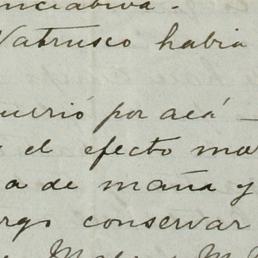 nciativa.
Natrusco habia
uerió por acá —
el efecto mor
a de maña y
rgo conservar